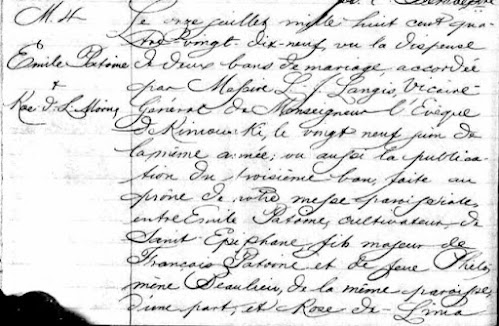 M. 4
Emile Patoine
&
Rose d. L. Morin
Le onze juillet mille huit cent qua
tre-vingt dix-neuf, vu la dispense
de deux bans de mariage, accordée
par Messire L. J. Langis, Vicaire
Général de Monseigneur l'Evêque
de Rimouski, le vingt neuf juin de
la même année; vu aussi la publica
tion du troisième ban, faite au
prône de notre messe paroissiale,
entre Emile Patoine, cultivateur, de
Saint Epiphane, fils majeur de
François Patoine et de feue Philo
mène Beaulieu, de la même paroisse,
d'une part, et Rose de Lima